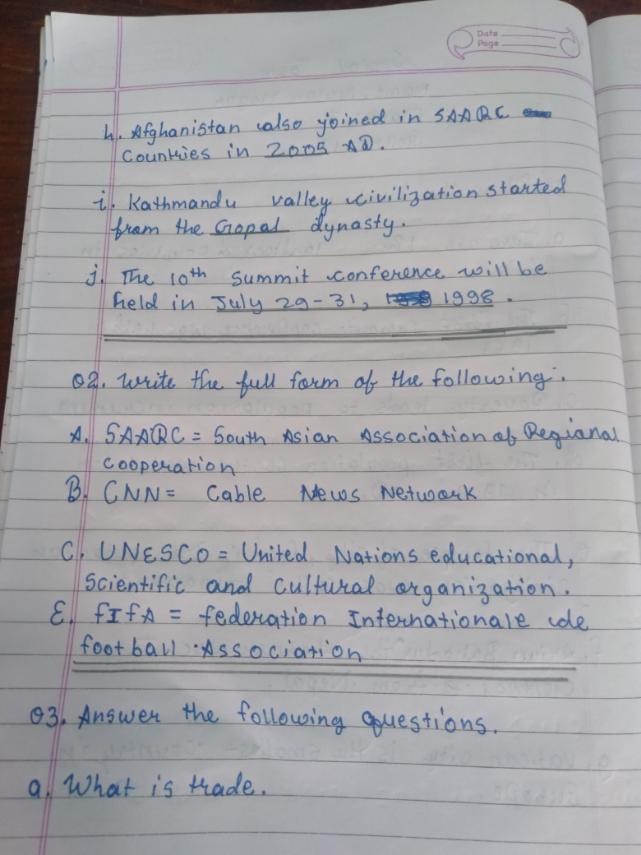 Date
Page
h. Afghanistan also joined in SAARC
Countries in 2005 AD.
i. Kathmandu valley civilization started
from the Gopal dynasty.
j. The 10th Summit conference will be
held in July 29-31, 1998.
Q2. Write the full form of the following:
A. SAARC = South Asian Association of Regional
cooperation
B. CNN = Cable News Network
C. UNESCO = United Nations educational,
Scientific and cultural organization.
E. FIFA = federation Internationale de
football Association
Q3. Answer the following questions.
a. What is trade.